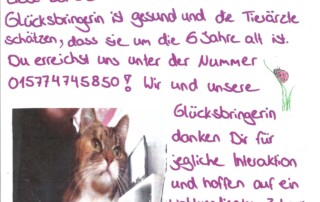 Glücksbringerin ist gesund und die Tierärzte
schätzen, dass sie um die 6 Jahre alt ist.
Du erreichst uns unter der Nummer
015774745850! Wir und unsere
Glücksbringerin
danken Dir für
jegliche Interaktion
und hoffen auf ein